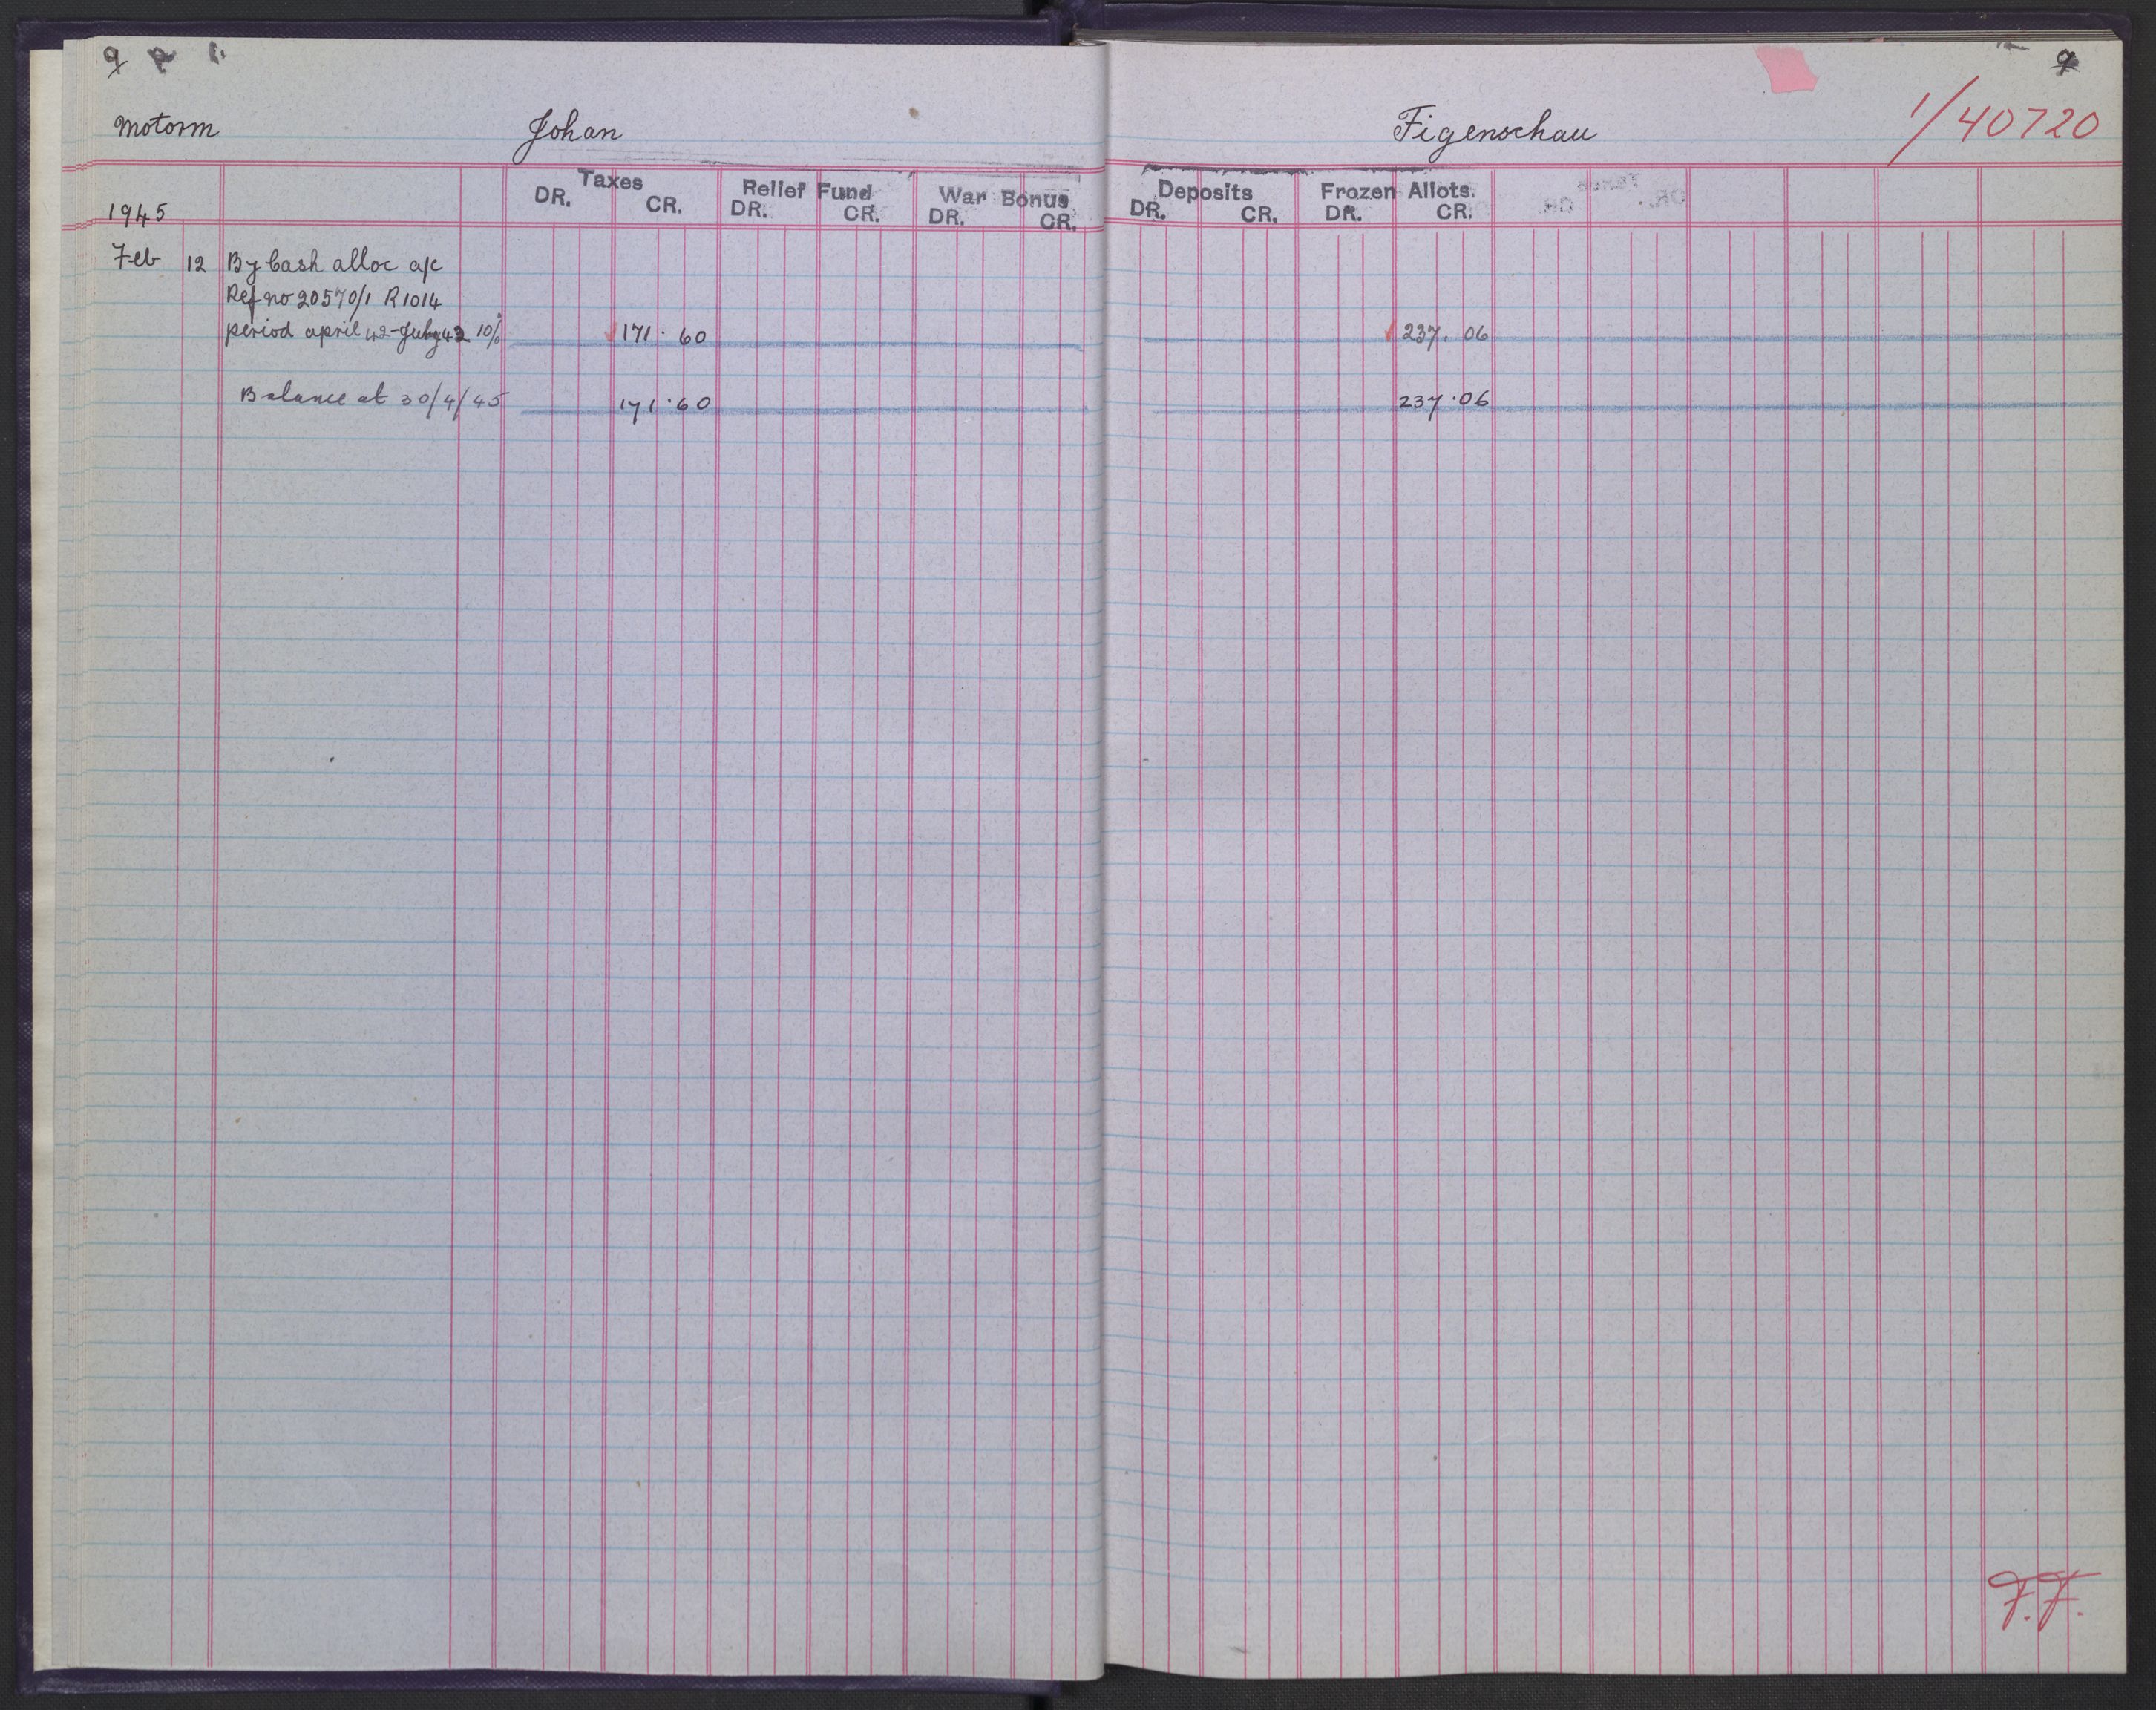 9
9
motorm Johan Figenschau 1/40720
Taxes Relief Fund War Bonus Deposits Frozen Allots.
1945 DR. CR. DR. CR. DR. CR. DR. CR. DR. CR.
Feb 12 By Cash alloc a/c
Ref no 20570/1 R1014
period april 42-July 42 10% 171.60 237.06
Balance at 30/4/45 171.60 237.06
F.F.